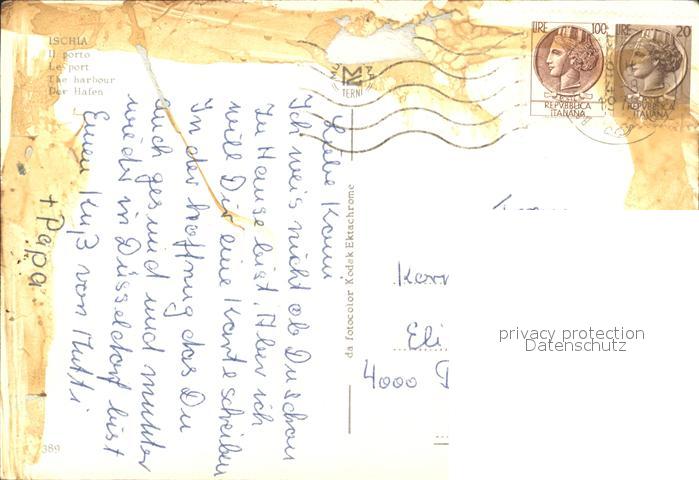 ISCHIA
Il porto
Le port
The harbour
Der Hafen
Liebe Konni
Ich weis nicht ob Du schon
zu Hause bist. Aber ich
will Dir eine Karte schreiben
In der hoffnug das Du
auch gesund und munter
wieder in Düsseldorf bist
Einen Kuß von Mutti
+ Papa
389
da fotocolor Kodak Ektachrome
TERNI
LIRE 100
REPVBBLICA
ITALIANA
LIRE 20
REPVBBLICA
ITALIANA
Eli
4000
privacy protection
Datenschutz